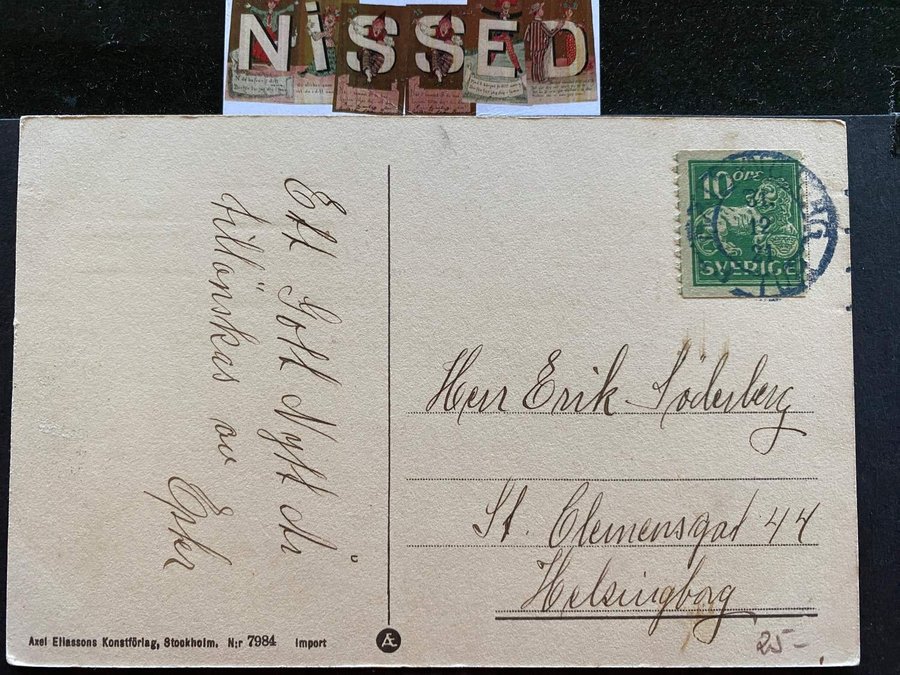 NISSED
Ett Gott Nytt år
tillönskas av
10 ÖRE
31
12
SVERIGE
Herr Erik Söderberg
St. Clemensgat 44
Helsingborg
Axel Eliassons Konstförlag, Stockholm. N:r 7984 Import
Æ
25-